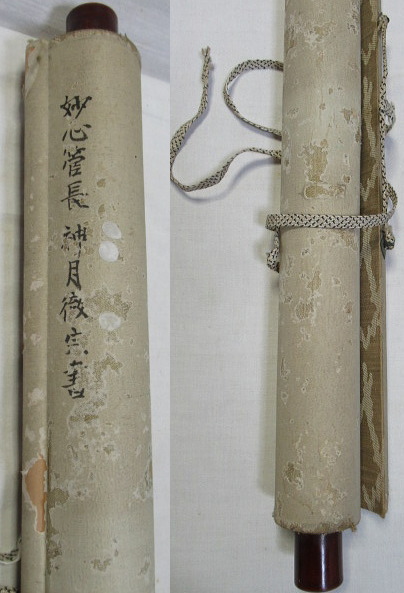 妙心管長 神月徹宗書